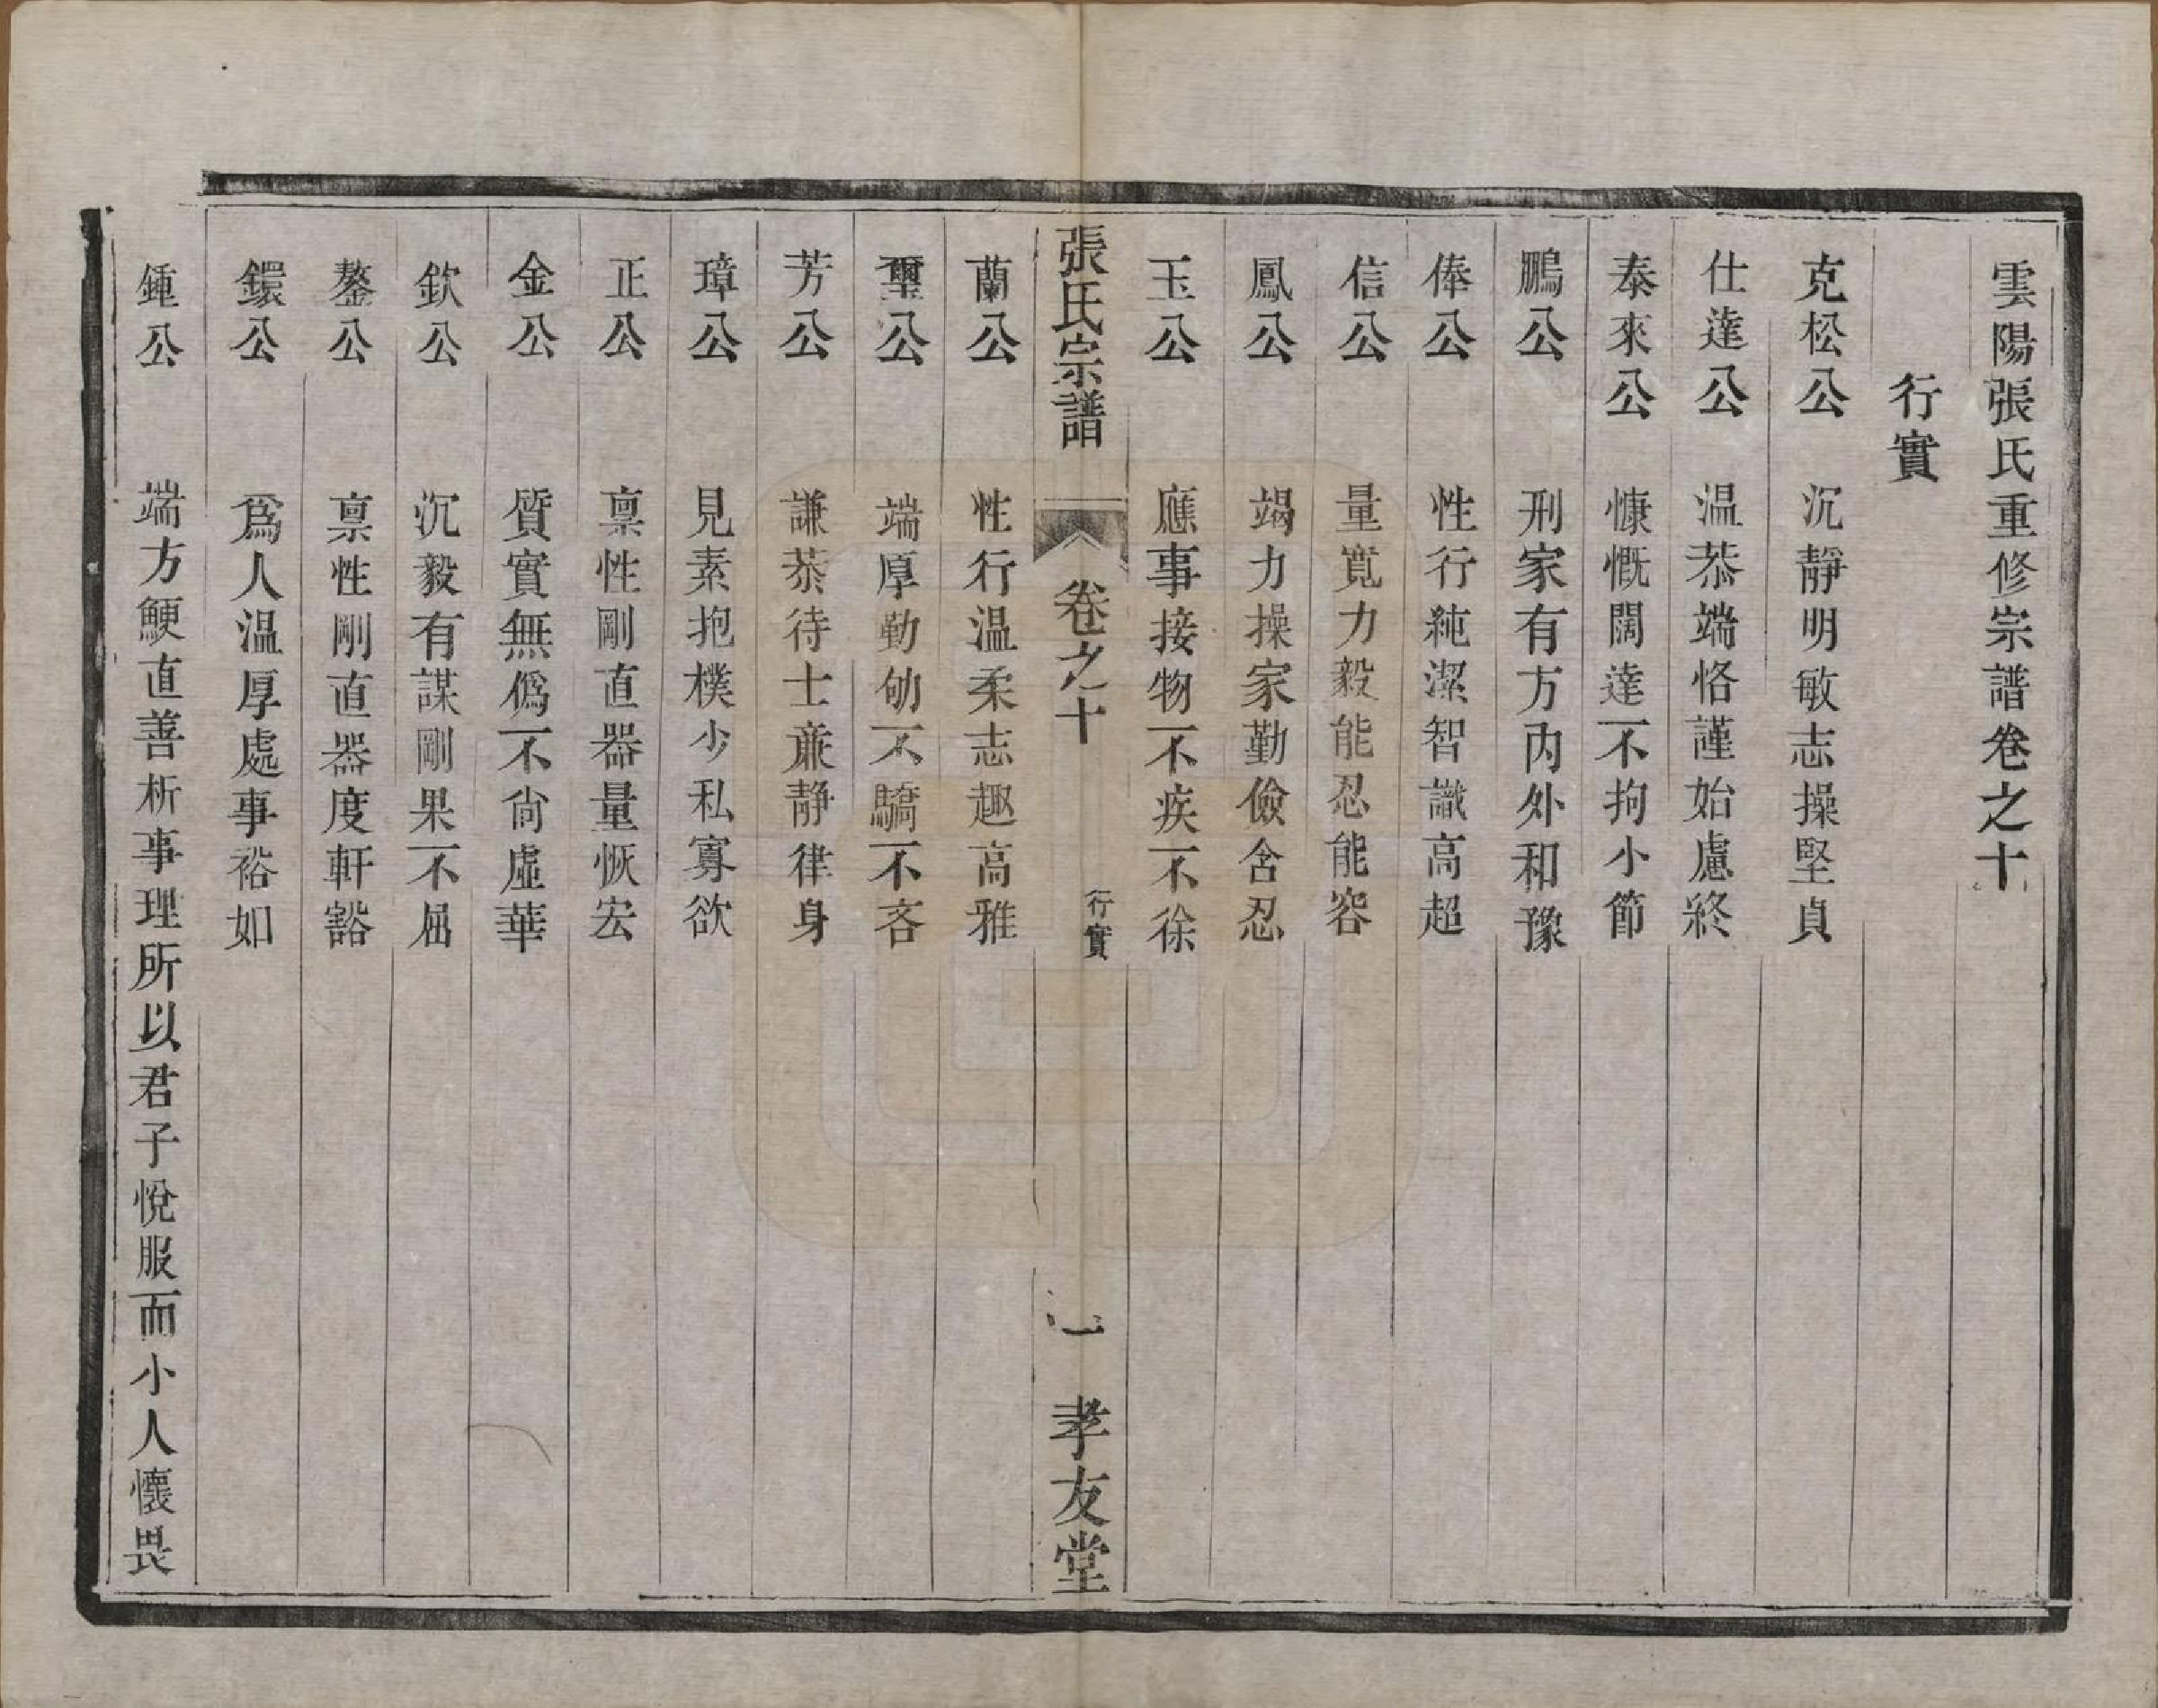 雲陽張氏重修宗譜卷之十
行實
克松公 沉靜明敏志操堅貞
仕達公 温恭端恪謹始慮終
泰來公 慷慨闊達不拘小節
鵬公 刑家有方內外和豫
俸公 性行純潔智識高超
信公 量寬力毅能忍能容
鳳公 竭力操家勤儉含忍
玉公 應事接物不疾不徐
張氏宗譜 卷之十 行實 一 孝友堂
蘭公 性行温柔志趣高雅
璽公 端厚勤劬不驕不吝
芳公 謙恭待士亷靜律身
璋公 見素抱樸少私寡欲
正公 禀性剛直器量恢宏
金公 質實無僞不尙虛華
欽公 沉毅有謀剛果不屈
鏊公 禀性剛直器度軒豁
鐶公 爲人温厚處事裕如
鍾公 端方鯁直善析事理所以君子悅服而小人懷畏